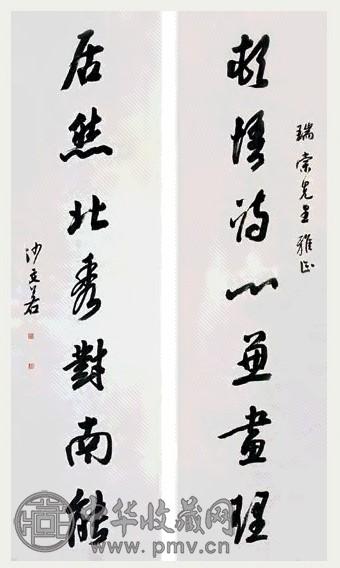 頓悟詩心兼畫理
瑞棠先生雅正
居然北秀對南能
沙 若
中华收藏网
www.pmv.cn